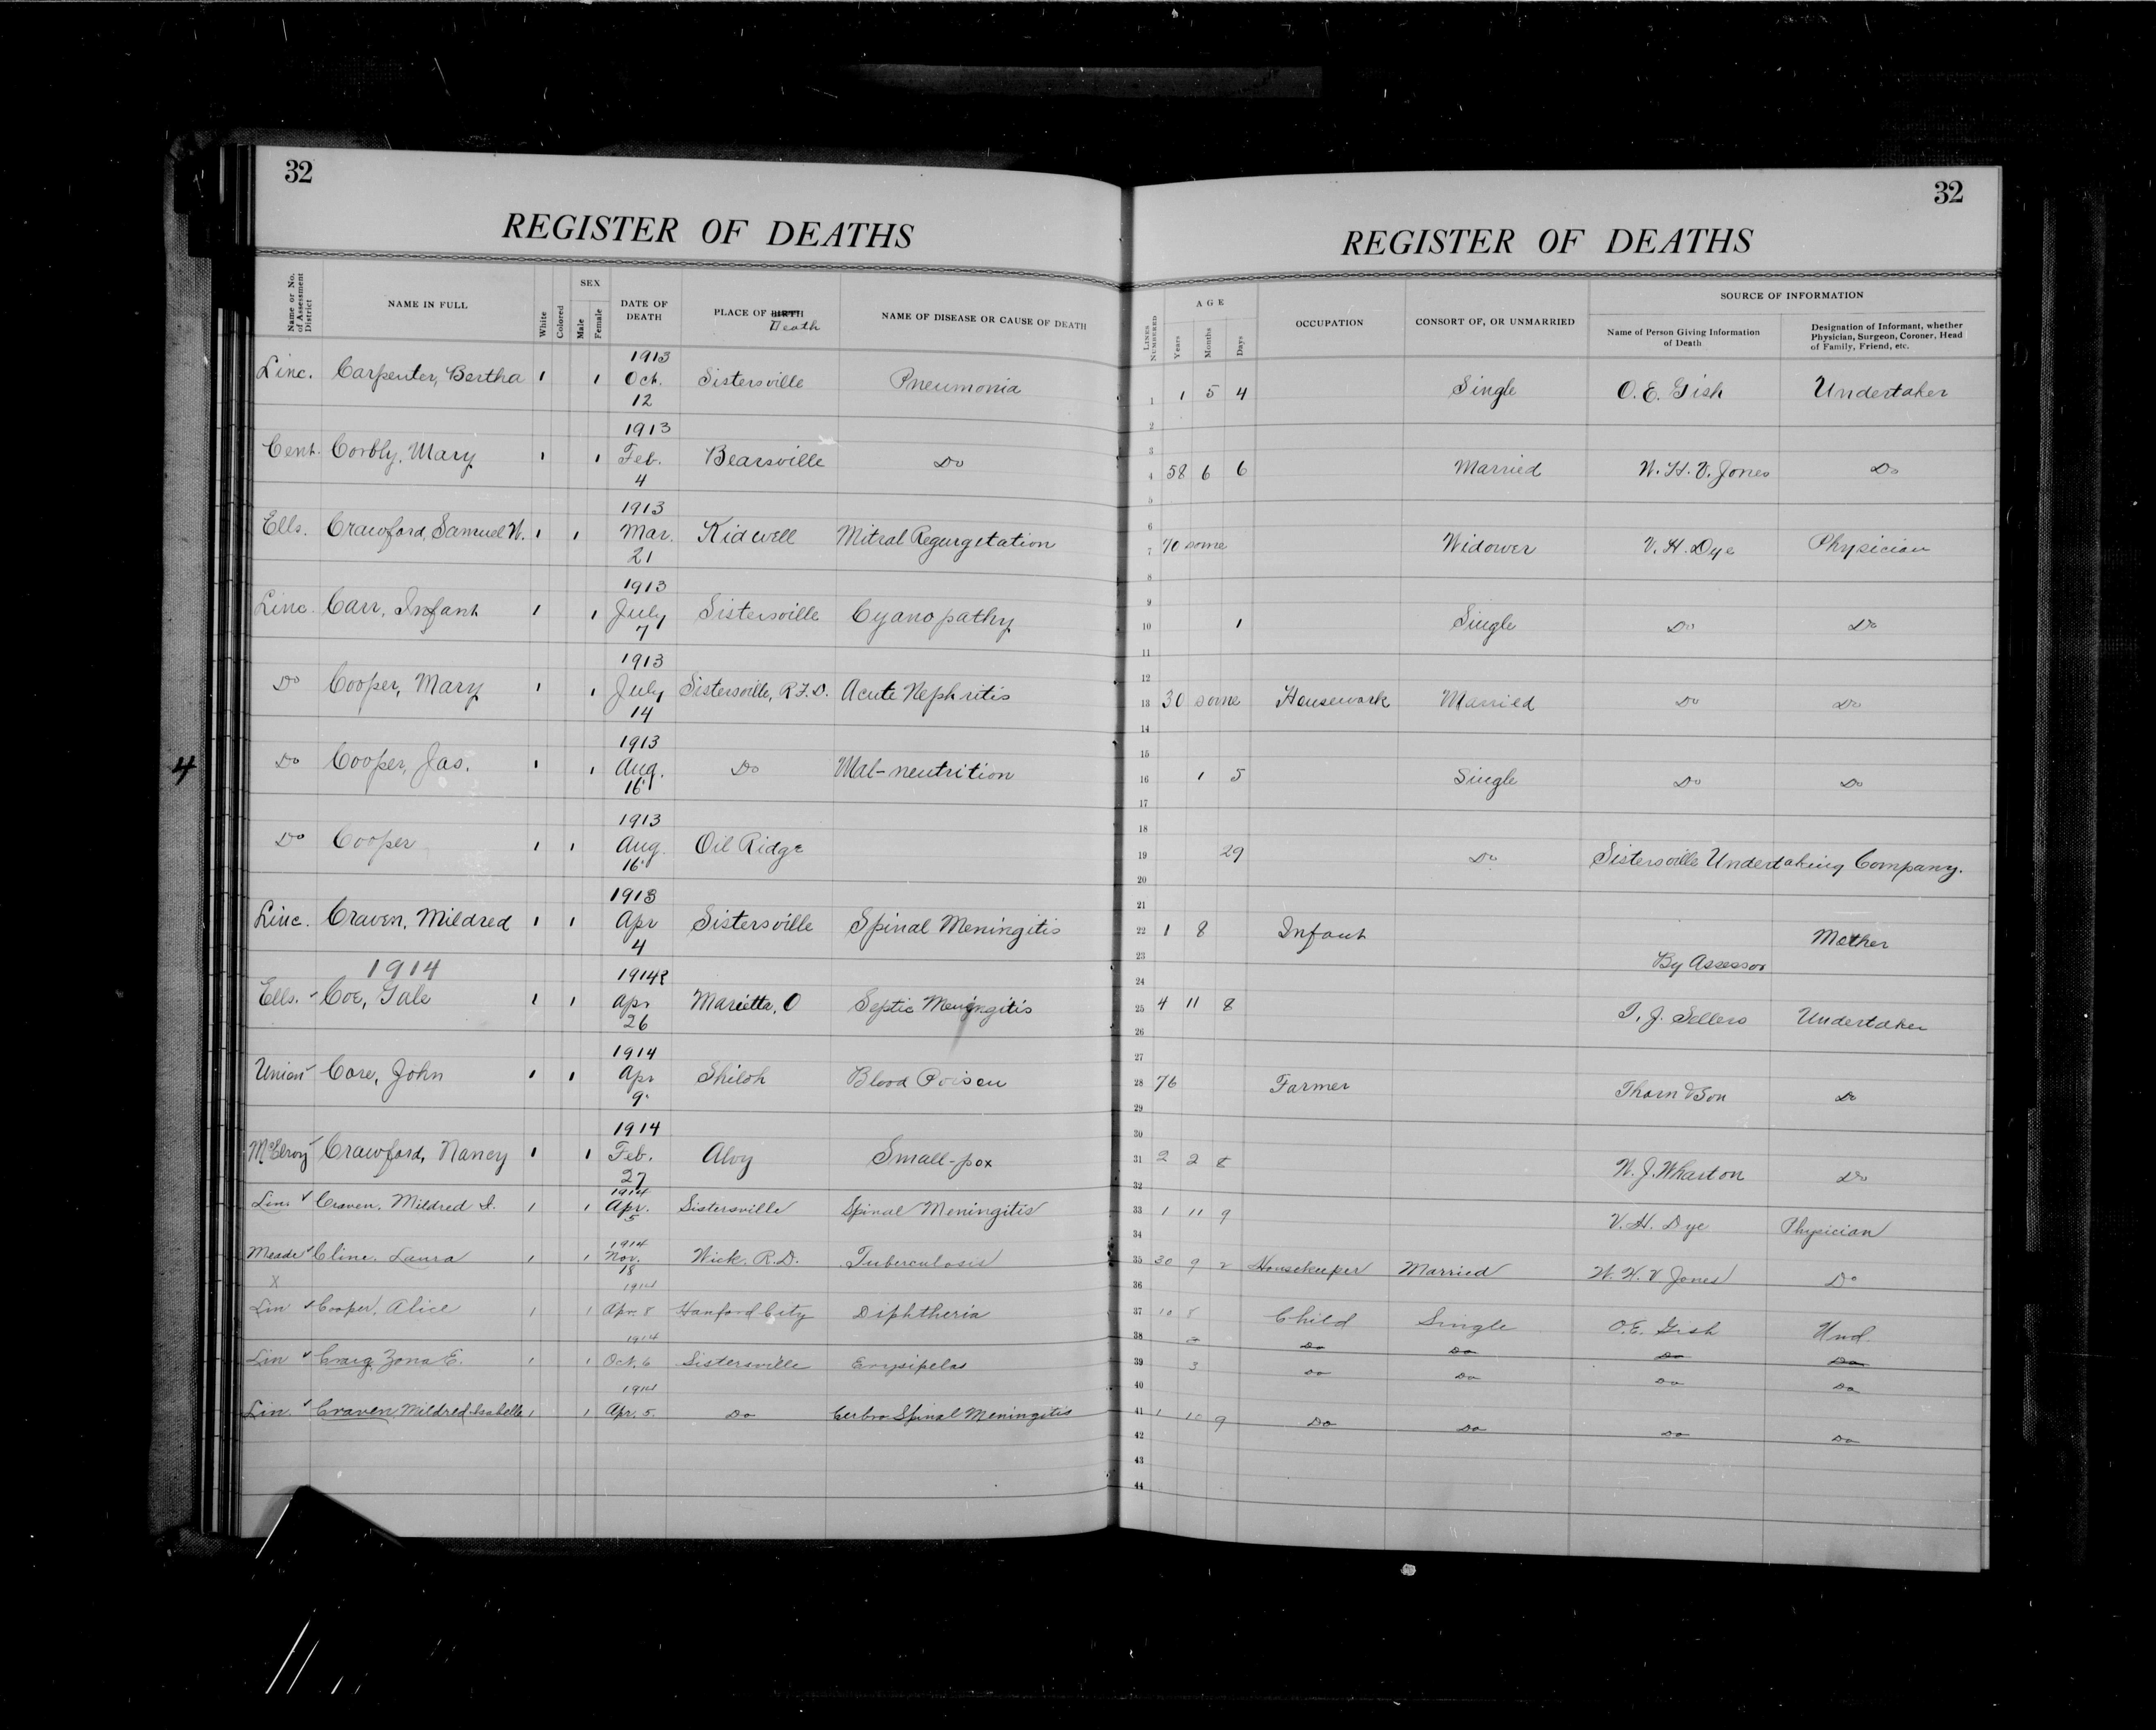 32
REGISTER OF DEATHS
Name or No. of Assessment District | NAME IN FULL | White | Colored | SEX Male | Female | DATE OF DEATH | PLACE OF BIRTH Death | NAME OF DISEASE OR CAUSE OF DEATH
Linc. Carpenter, Bertha 1 1 1913 Oct. 12 Sistersville Pneumonia
Cent. Corbly, Mary 1 1 1913 Feb. 4 Bearsville Do
Ells. Crawford, Samuel W. 1 1 1913 Mar. 21 Kidwell Mitral Regurgetation
Linc. Carr, Infant 1 1 1913 July 7 Sistersville Cyanopathy
Do Cooper, Mary 1 1 1913 July 14 Sistersville, R.F.D. Acute Nephritis
4
Do Cooper, Jas. 1 1 1913 Aug. 16 Do Mal-neutrition
Do Cooper 1 1 1913 Aug. 16 Oil Ridge
Linc. Craven, Mildred 1 1 1913 Apr 4 Sistersville Spinal Meningitis
1914
Ells. Coe, Gale 1 1 1914 Apr 26 Marietta, O Septic Meningitis
Union Core, John 1 1 1914 Apr 9 Shiloh Blood Poison
McElroy Crawford, Nancy 1 1 1914 Feb. 27 Alvy Small-pox
Linc Craven, Mildred I. 1 1 1914 Apr. 5 Sistersville Spinal Meningitis
Meade Cline, Laura 1 1 1914 Nov. 18 Wick. R.D. Tuberculosis
X
Lin Cooper, Alice 1 1 1914 Apr. 8 Hanford City Diphtheria
Lin Craig, Zona E. 1 1 1914 Oct. 6 Sistersville Erysipelas
Lin. Craven, Mildred Isabelle 1 1 1914 Apr. 5 Do Cerbro Spinal Meningitis
32
REGISTER OF DEATHS
LINES NUMBERED | AGE Years | Months | Days | OCCUPATION | CONSORT OF, OR UNMARRIED | SOURCE OF INFORMATION
Name of Person Giving Information of Death | Designation of Informant, whether Physician, Surgeon, Coroner, Head of Family, Friend, etc.
1 1 5 4 Single O. E. Gish Undertaker
2
3
4 58 6 6 Married W. H. V. Jones Do
5
6
7 70 some Widower V. H. Dye Physician
8
9
10 1 Single Do Do
11
12
13 30 some Housework Married Do Do
14
15
16 1 5 Single Do Do
17
18
19 29 Do Sistersville Undertaking Company.
20
21
22 1 8 Infant Mother
23 By Assessor
24
25 4 11 8 T. J. Sellers Undertaker
26
27
28 76 Farmer Thorn & Son Do
29
30
31 2 2 8 W. J. Wharton Do
32
33 1 11 9 V. H. Dye Physician
34
35 30 9 2 Housekeeper Married W. H. V Jones Do
36
37 10 8 Child Single O.E. Gish Und.
38 Do Do Do Do
39 3 Do Do Do Do
40
41 1 10 9 Do Do Do Do
42
43
44